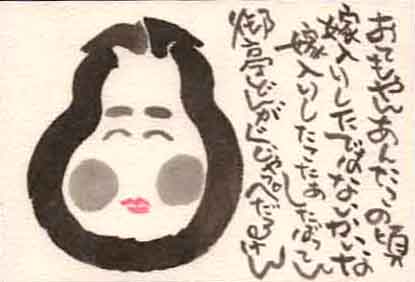 おてもやんあんたこの頃
嫁入りしたではないかいな
嫁入りしたこたあしたばってん
御亭どんがぐじゃっぺだるけん